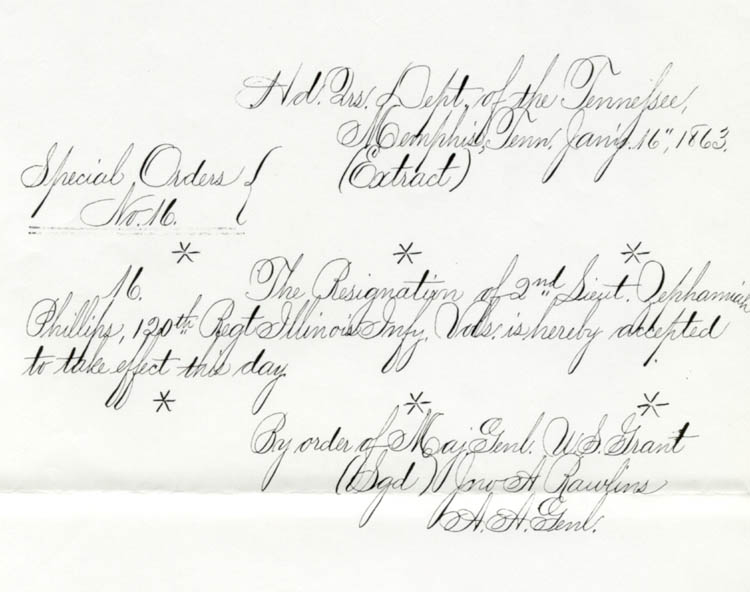 Hd. Qrs. Dept. of the Tennessee,
Memphis, Tenn. Jan'y. 16", 1863.
Special Orders { (Extract)
No. 16.
* * *
16. The Resignation of 2nd Lieut. Zephanniah
Phillips, 120th Regt Illinois Infy. Vols. is hereby accepted
to take effect this day.
* * *
By order of Maj. Genl. U. S. Grant
(Sgd) Jno A Rawlins
A. A. Genl.